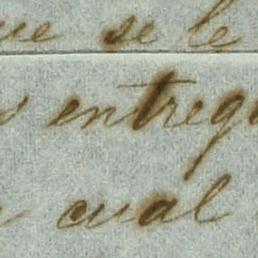 ue se le
entreg
cual